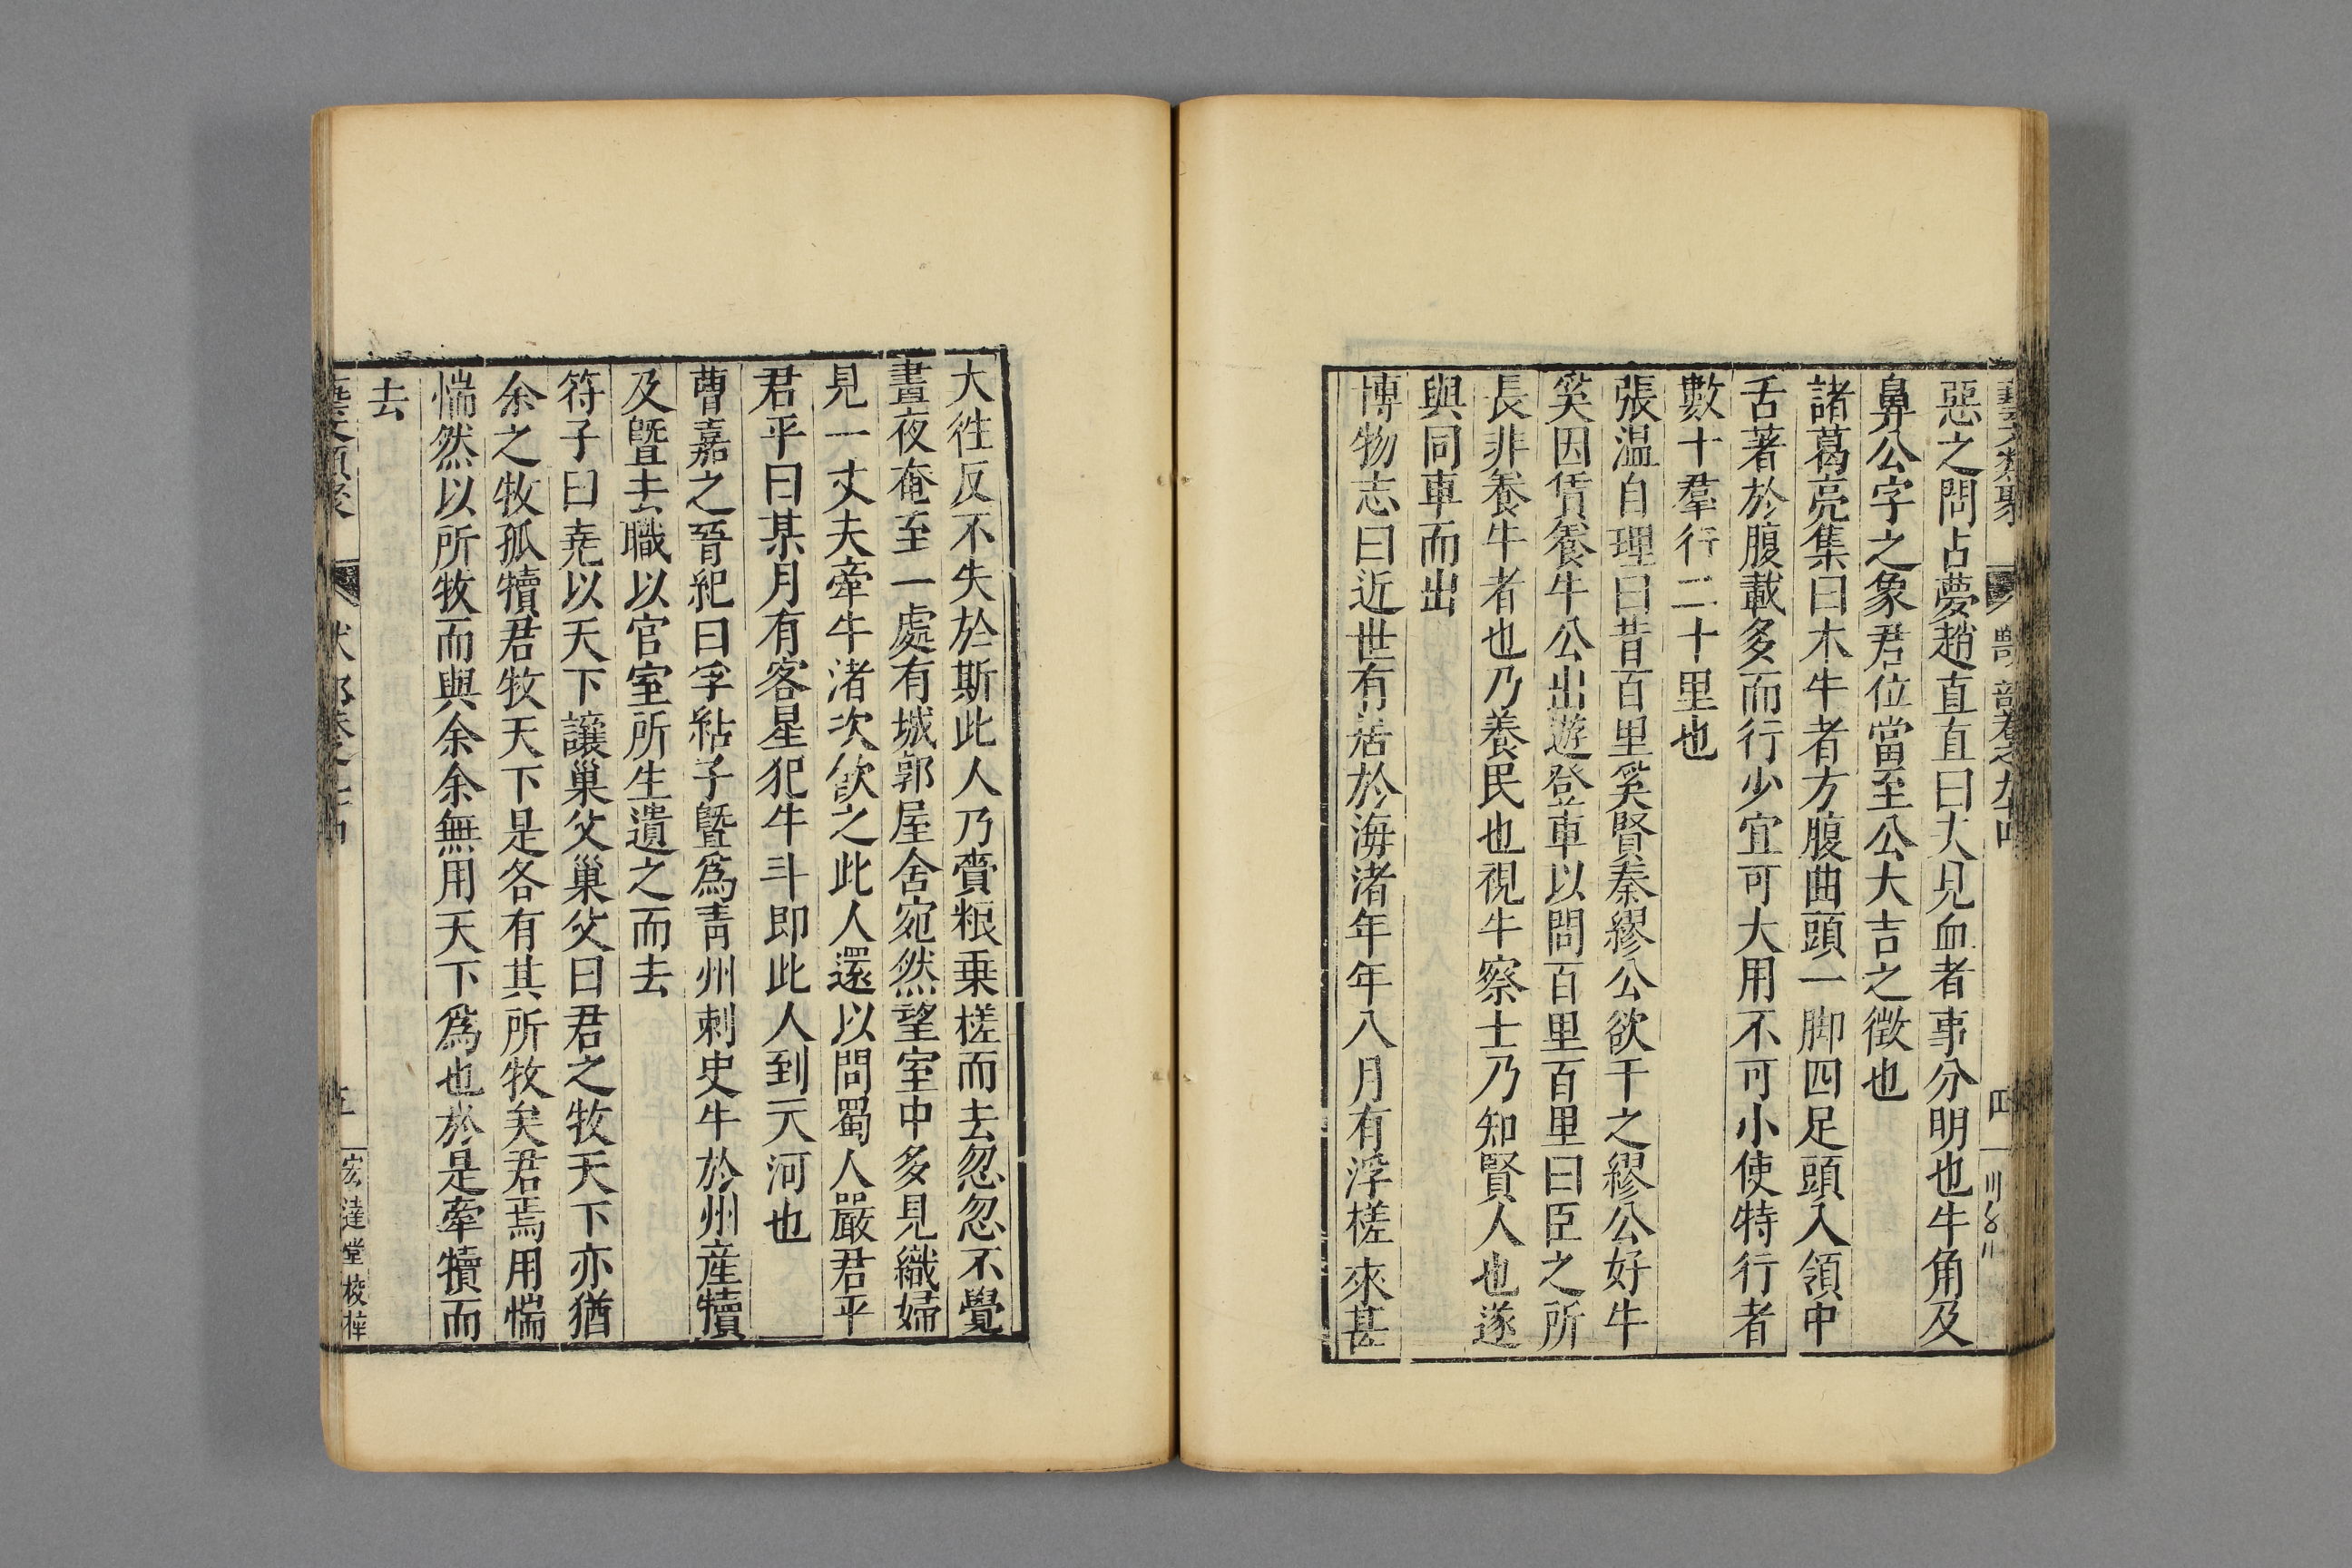 藝文類聚 獸部卷之九十四 四
惡之問占夢趙直直曰夫見血者事分明也牛角及
鼻公字之象君位當至公大吉之徵也
諸葛亮集曰木牛者方腹曲頭一脚四足頭入領中
舌著於腹載多而行少宜可大用不可小使特行者
數十羣行二十里也
張温自理曰昔百里奚賢秦繆公欲干之繆公好牛
奚因賃養牛公出遊登車以問百里百里曰臣之所
長非養牛者也乃養民也視牛察士乃知賢人也遂
與同車而出
博物志曰近世有居於海渚年年八月有浮槎來甚
大徃反不失於斯此人乃賫粮乗槎而去忽忽不覺
晝夜奄至一處有城郭屋舍宛然望室中多見織婦
見一丈夫牽牛渚次飲之此人還以問蜀人嚴君平
君平曰某月有客星犯牛斗即此人到天河也
曹嘉之晉紀曰羊祜子曁為青州刺史牛於州産犢
及曁去職以官室所生遺之而去
符子曰堯以天下讓巢父巢父曰君之牧天下亦猶
余之牧孤犢君牧天下是各有其所牧矣君焉用惴
惴然以所牧而與余余無用天下為也於是牽犢而
去
藝文類聚 獸部卷之九十四 五 宏達堂校梓